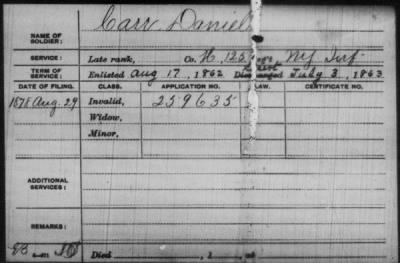 Carr Daniel
NAME OF SOLDIER:
SERVICE: Late rank, Co. H, 125 Reg't NY Inf.
TERM OF SERVICE: Enlisted Aug 17, 1862 Discharged July 3, 1863
DATE OF FILING. CLASS. APPLICATION NO. LAW. CERTIFICATE NO.
1878 Aug. 29 Invalid, 259635
Widow,
Minor,
ADDITIONAL SERVICES:
REMARKS:
Died , 1 , at